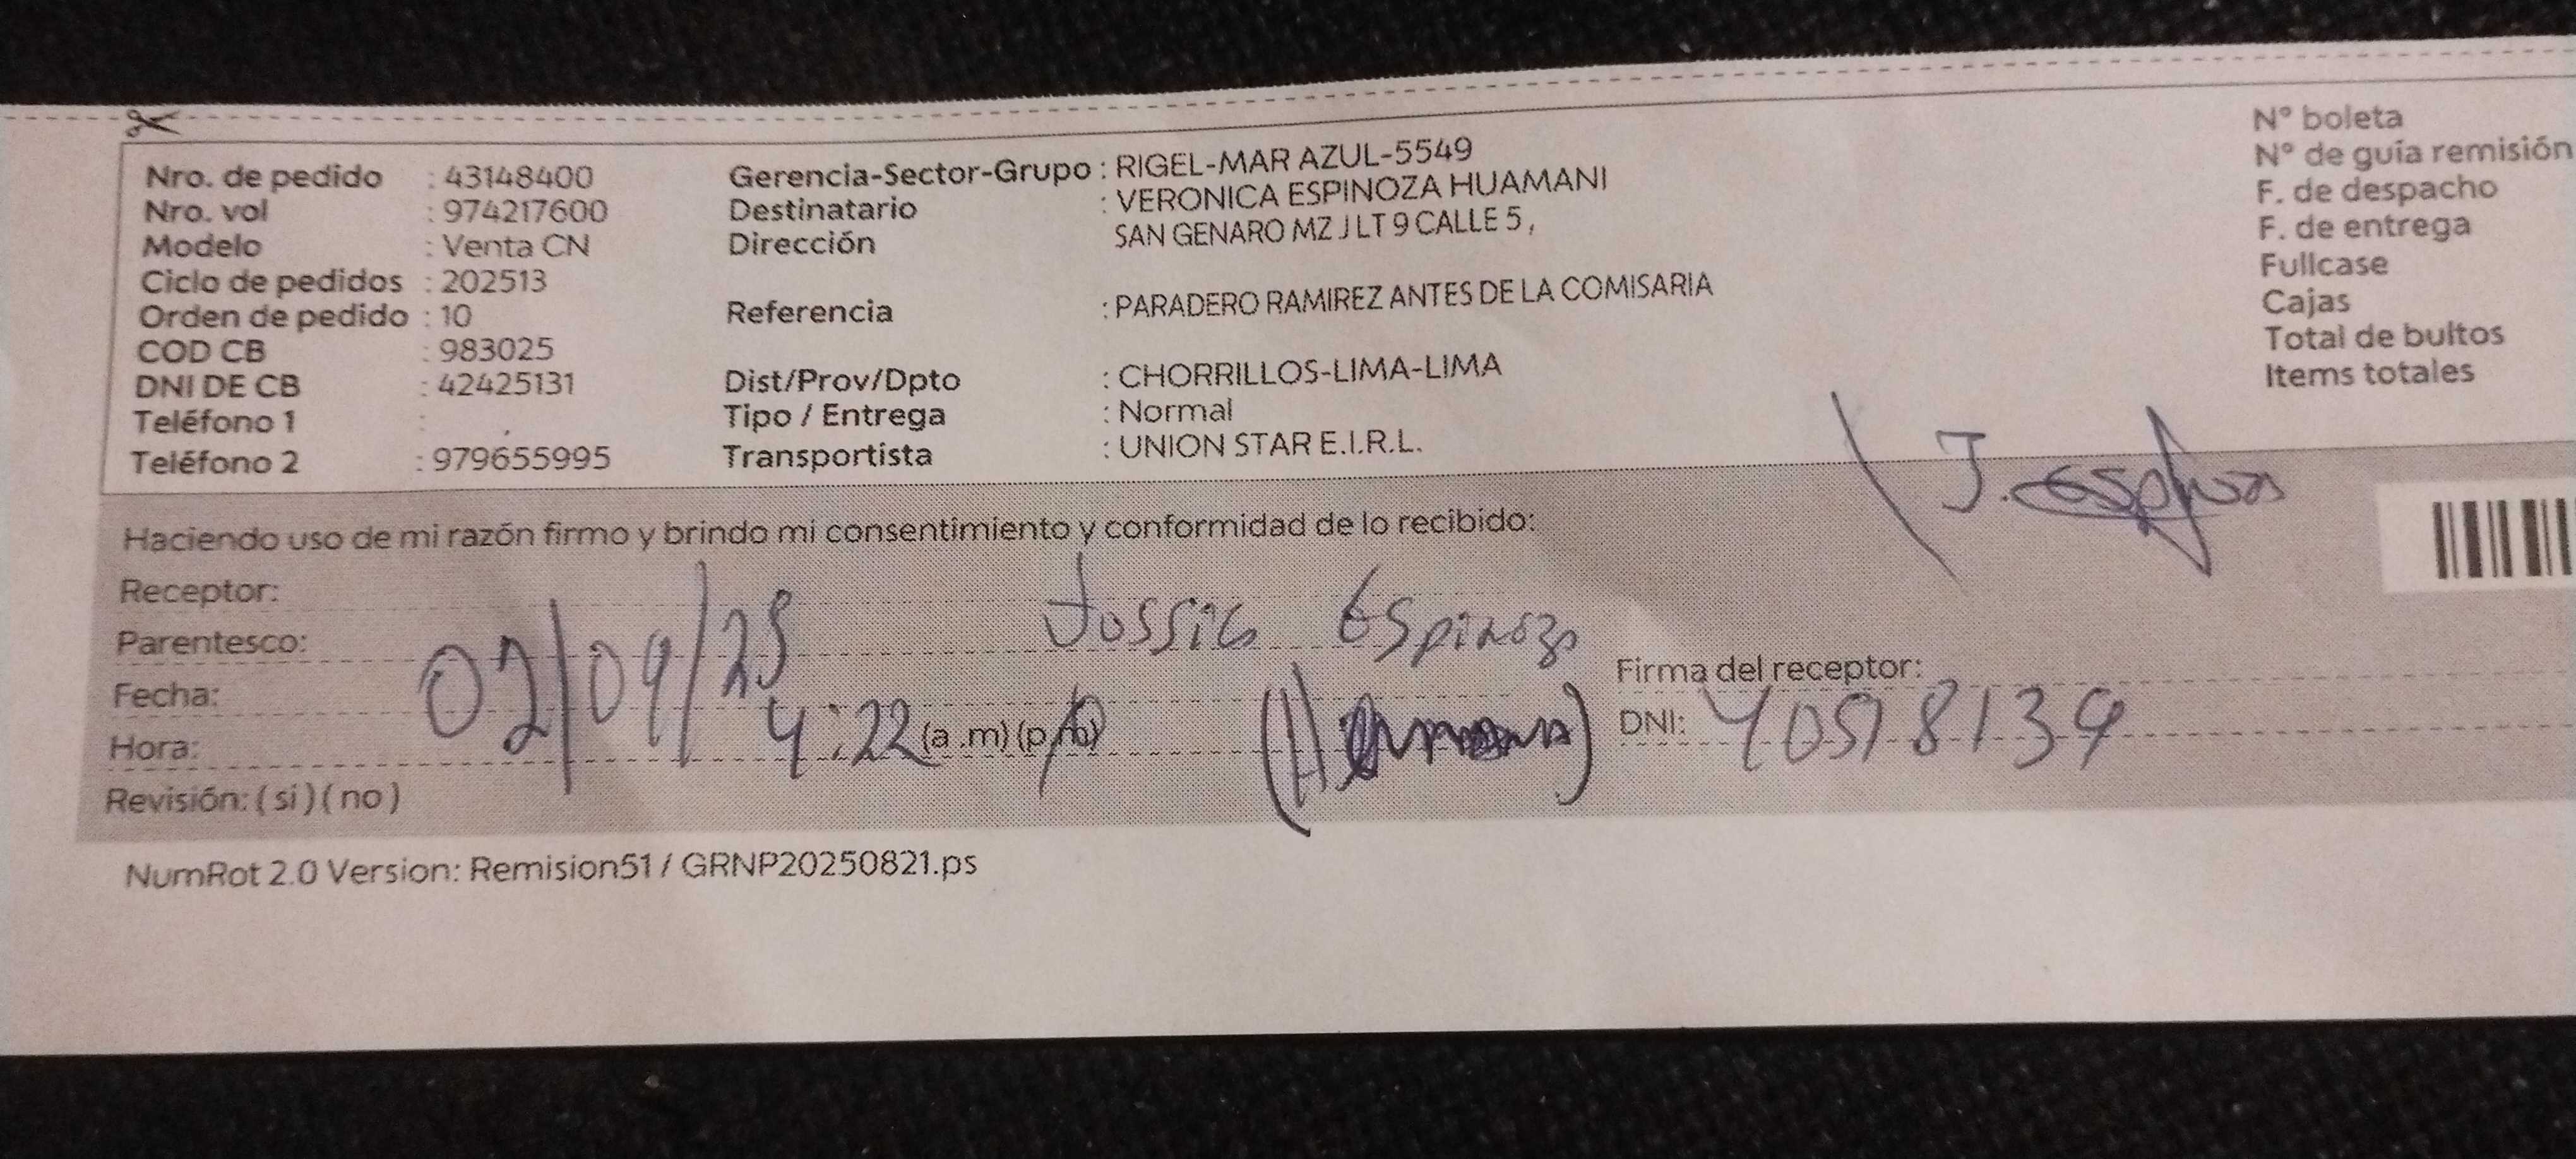 Nro. de pedido : 43148400
Nro. vol : 974217600
Modelo : Venta CN
Ciclo de pedidos : 202513
Orden de pedido : 10
COD CB : 983025
DNI DE CB : 42425131
Teléfono 1 :
Teléfono 2 : 979655995
Gerencia-Sector-Grupo : RIGEL-MAR AZUL-5549
Destinatario : VERONICA ESPINOZA HUAMANI
Dirección SAN GENARO MZ J LT 9 CALLE 5 ,
Referencia : PARADERO RAMIREZ ANTES DE LA COMISARIA
Dist/Prov/Dpto : CHORRILLOS-LIMA-LIMA
Tipo / Entrega : Normal
Transportista : UNION STAR E.I.R.L.
N° boleta
N° de guía remisión
F. de despacho
F. de entrega
Fullcase
Cajas
Total de bultos
Items totales
Haciendo uso de mi razón firmo y brindo mi consentimiento y conformidad de lo recibido:
Receptor:
Parentesco: Espinoza
Fecha: 02/09/25
Hora: 4:22 (a.m) (p.m)
Revisión: ( si ) ( no )
Firma del receptor:
DNI: 40598139
NumRot 2.0 Version: Remision51 / GRNP20250821.ps